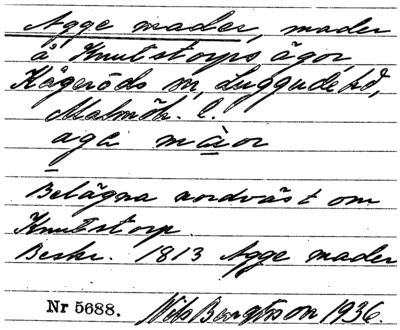 Agge mader, mader
å Knutstorps ägor,
Kågeröds sn, Luggude hd,
Malmöh. l.
aga màor
Belägna nordväst om
Knutstorp.
Beskr. 1813 Agge mader
Nr 5688. Nils Bengtsson 1936.